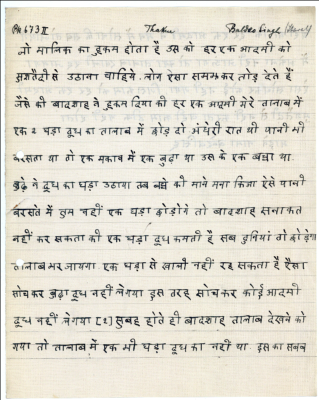 PH 673 II Thakur Baldeo Singh
जो मालिक का हुकम होता है उस को हर एक आदमी को
मुसतैदी से उठाना चाहिये. लोग ऐसा समझकर तोड़ देते हैं
जैसे की बादशाह ने हुकम दिया की हर एक आदमी मेरे तालाब में
एक २ घड़ा दूध का तालाब में छोड़ दो अंधेरी रात थी पानी भी
बरसता था तो एक मकान में एक बुढ़ा था उस के एक बच्चा था.
बुढ़े ने दूध का घड़ा उठाया तब बच्चे की माने मना किआ ऐसे पानी
बरसते में तुम नहीं एक घड़ा छोड़ोगे तो बादशाह सनाकत
नहीं कर सकता की एक घड़ा दूध कमती है सब दुनियां तो छोड़ेगा
तालाब भर जायगा एक घड़ा से खाली नहीं रह सकता है ऐसा
सोचकर बुढ़ा दूध नहीं लेगया इस तरह सोचकर कोई आदमी
दूध नहीं लेगया [२] सुबह होते ही बादशाह तालाब देखने को
गया तो तालाब में एक भी घड़ा दूध का नहीं था. इस का सबब